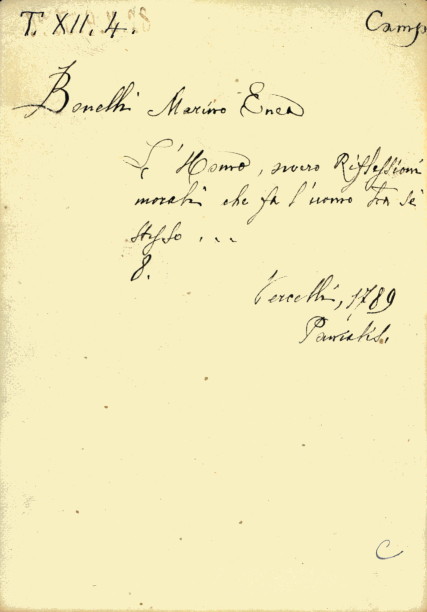 T. XII. 4.
Camp
Bonelli Marino Enea
L'Homo, ovvero Riflessioni
morali che fa l'uomo tra sè
stesso ...
8.
Vercelli, 1789
Panialis.
C